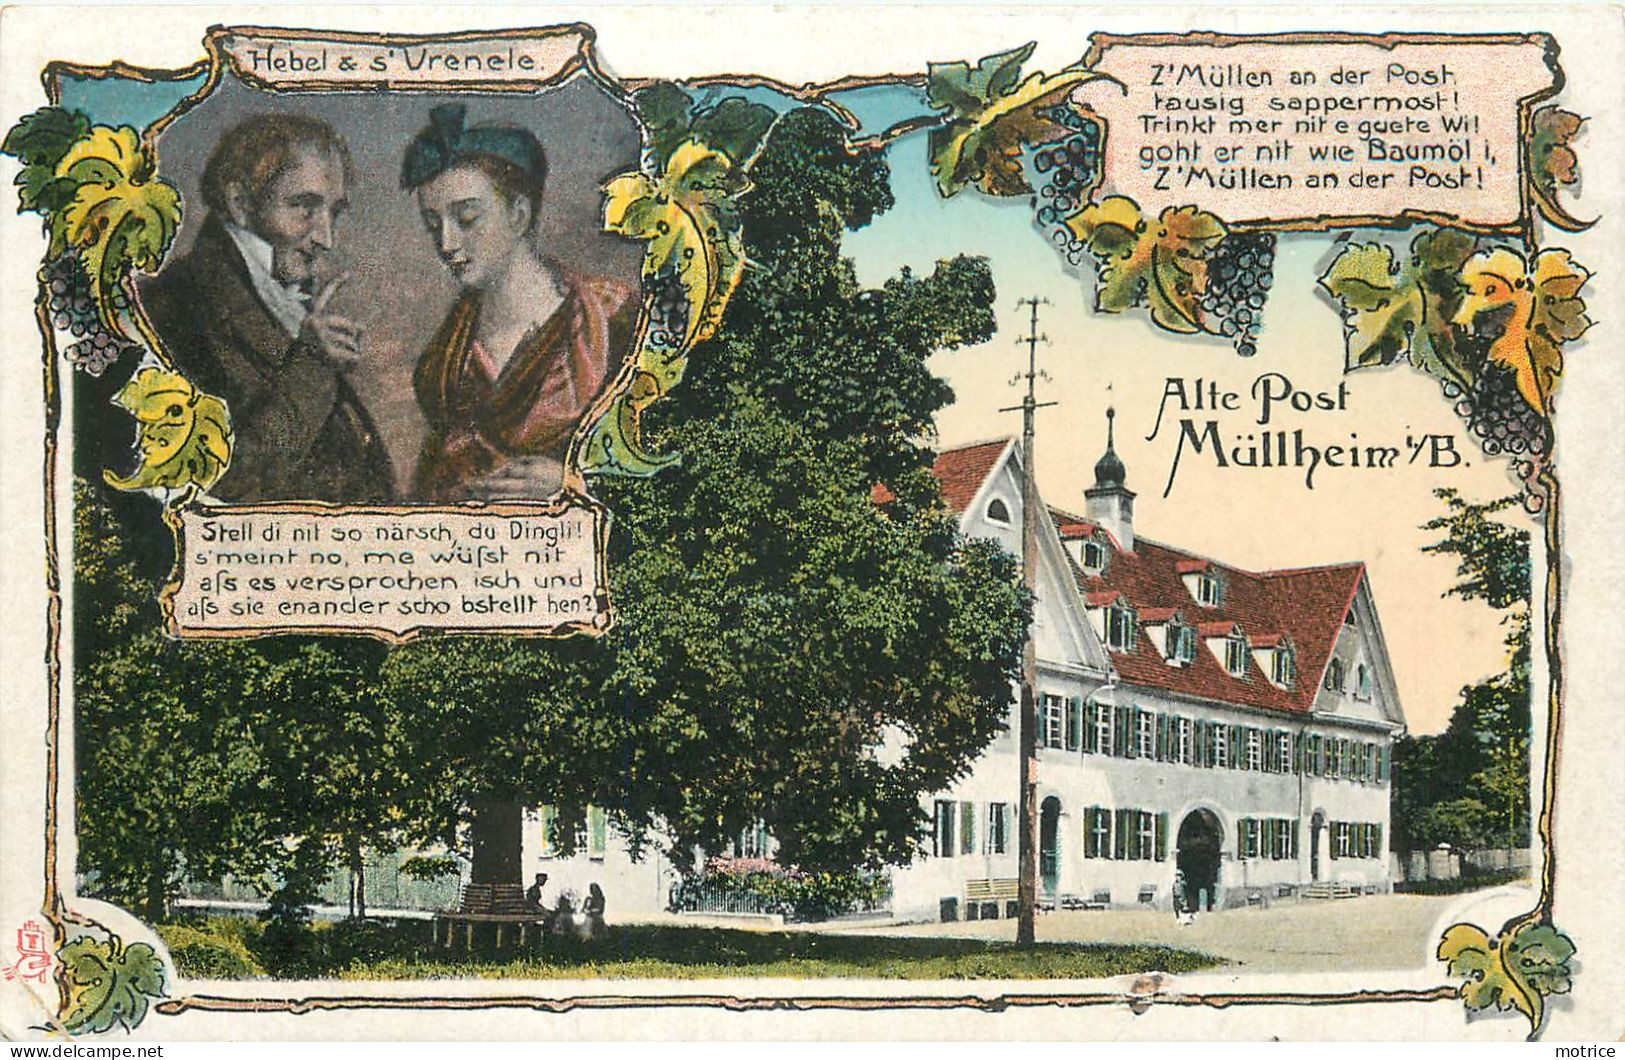 Hebel & s'Vrenele.
Z'Müllen an der Post,
tausig sappermost!
Trinkt mer nit e guete Wi!
goht er nit wie Baumöl i,
Z'Müllen an der Post!
Alte Post
Müllheim i/B.
Stell di nit so närsch, du Dingli!
s'meint no, me wüſst nit
aſs es versprochen isch und
aſs sie enander scho bstellt hen?
motrice